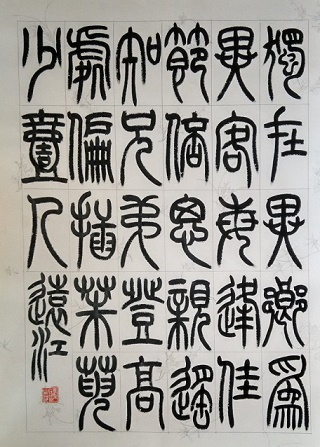 獨在異鄉為
異客每逢佳
節倍思親遙
知兄弟登高
處偏插茱萸
少壹人 遠江